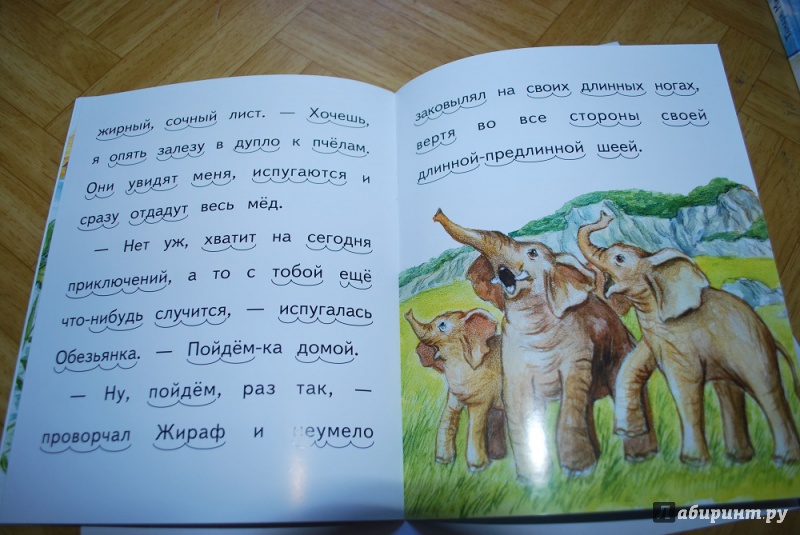 жирный, сочный лист. — Хочешь,
я опять залезу в дупло к пчёлам.
Они увидят меня, испугаются и
сразу отдадут весь мёд.
— Нет уж, хватит на сегодня
приключений, а то с тобой ещё
что-нибудь случится, — испугалась
Обезьянка. — Пойдём-ка домой.
— Ну, пойдём, раз так, —
проворчал Жираф и неумело
заковылял на своих длинных ногах,
вертя во все стороны своей
длинной-предлинной шеей.
Лабиринт.ру